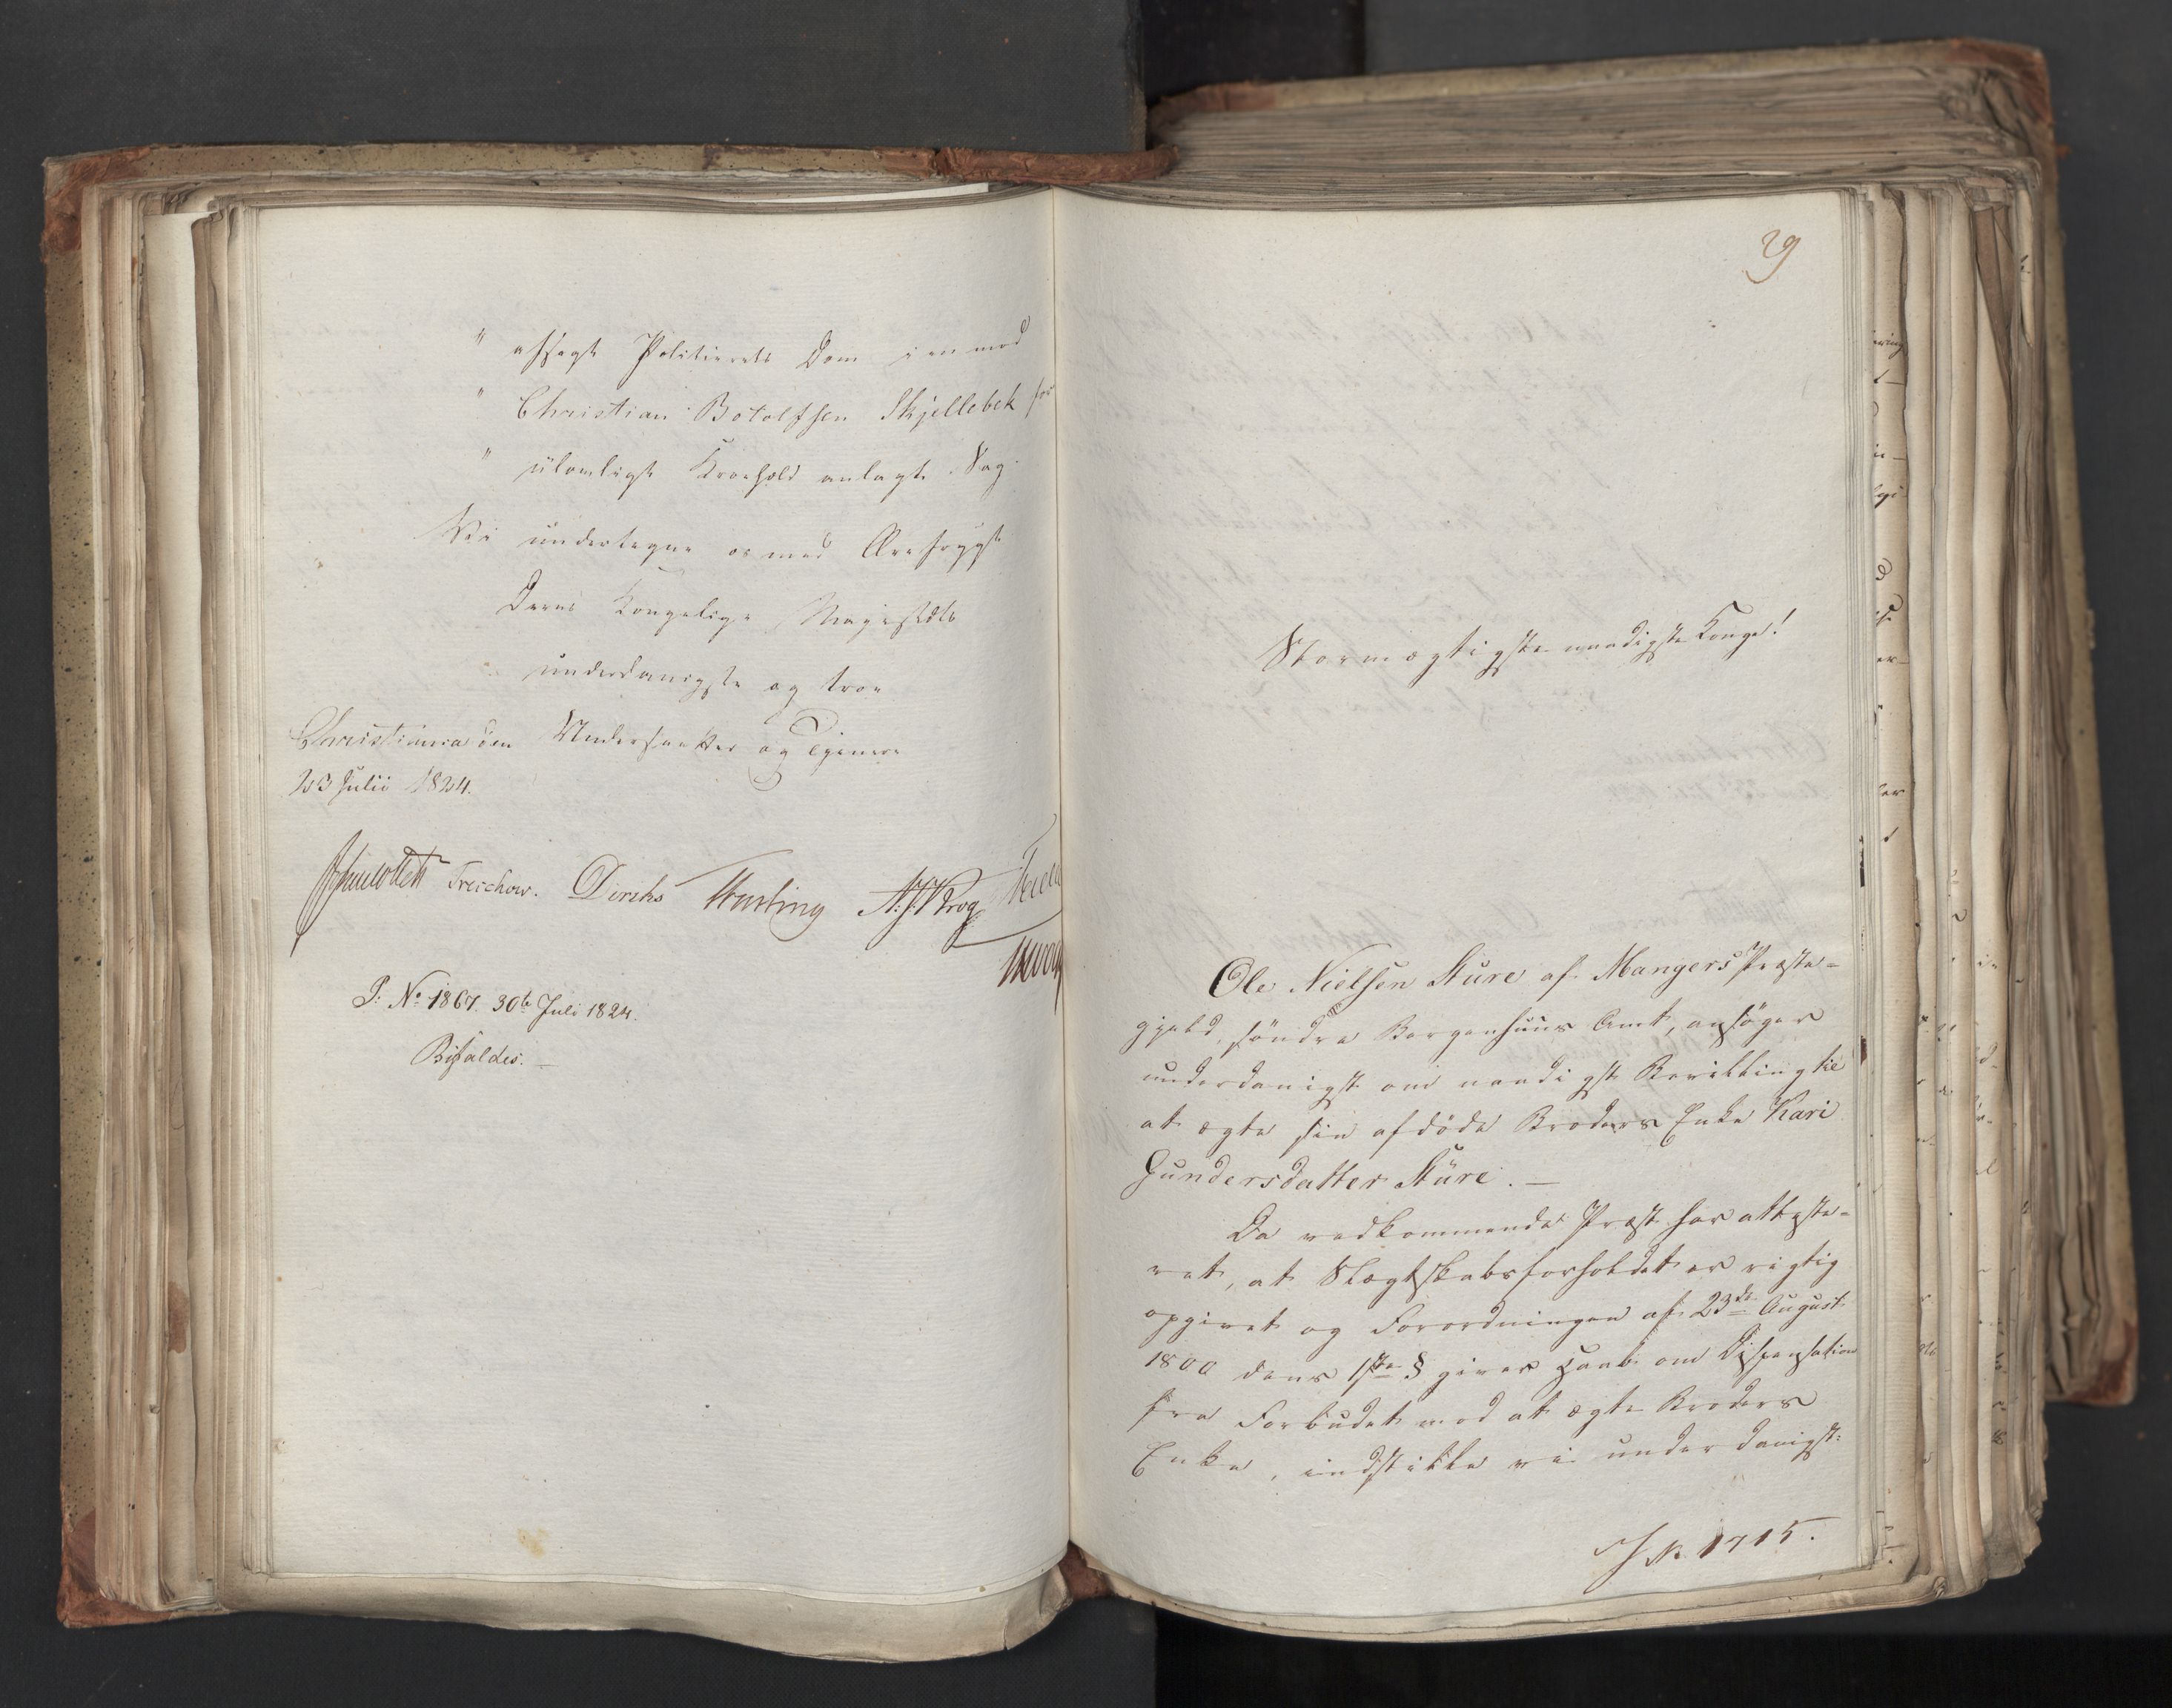 " afsagt Politierets Dom i en mod
" Christian Botolfsen Skjellebek for
" ulovligt Kroehold anlagt Sag.
Vi undertegne os med Ærefrygt
Deres Kongelige Majestæts
underdanigste og troe
Christiania den Undersaatter og Tjenere
23 Julii 1824.
Treschow. Diriks Hartling A: J: Krog
P: No 1867. 30te Juli 1824.
Bifaldes. —
29
Stormægtigste naadigste Konge!
Ole Nielsen Sture af Mangers Præste-
gjeld, søndre Bergenhuus Amt, ansøger
underdanigst om naadigst Bevilling til
at ægte sin afdøde Broders Enke Kari
Gundersdatter Sture. —
Da vedkommende Præst har atteste-
ret, at Slægtskabsforholdet er rigtig
opgivet og Forordningen af 23de August
1800 dens 1ste § giver Haab om Dispensation
fra Forbudet mod at ægte Broders
Enke, indstille vi underdanigst:
J No 1715.